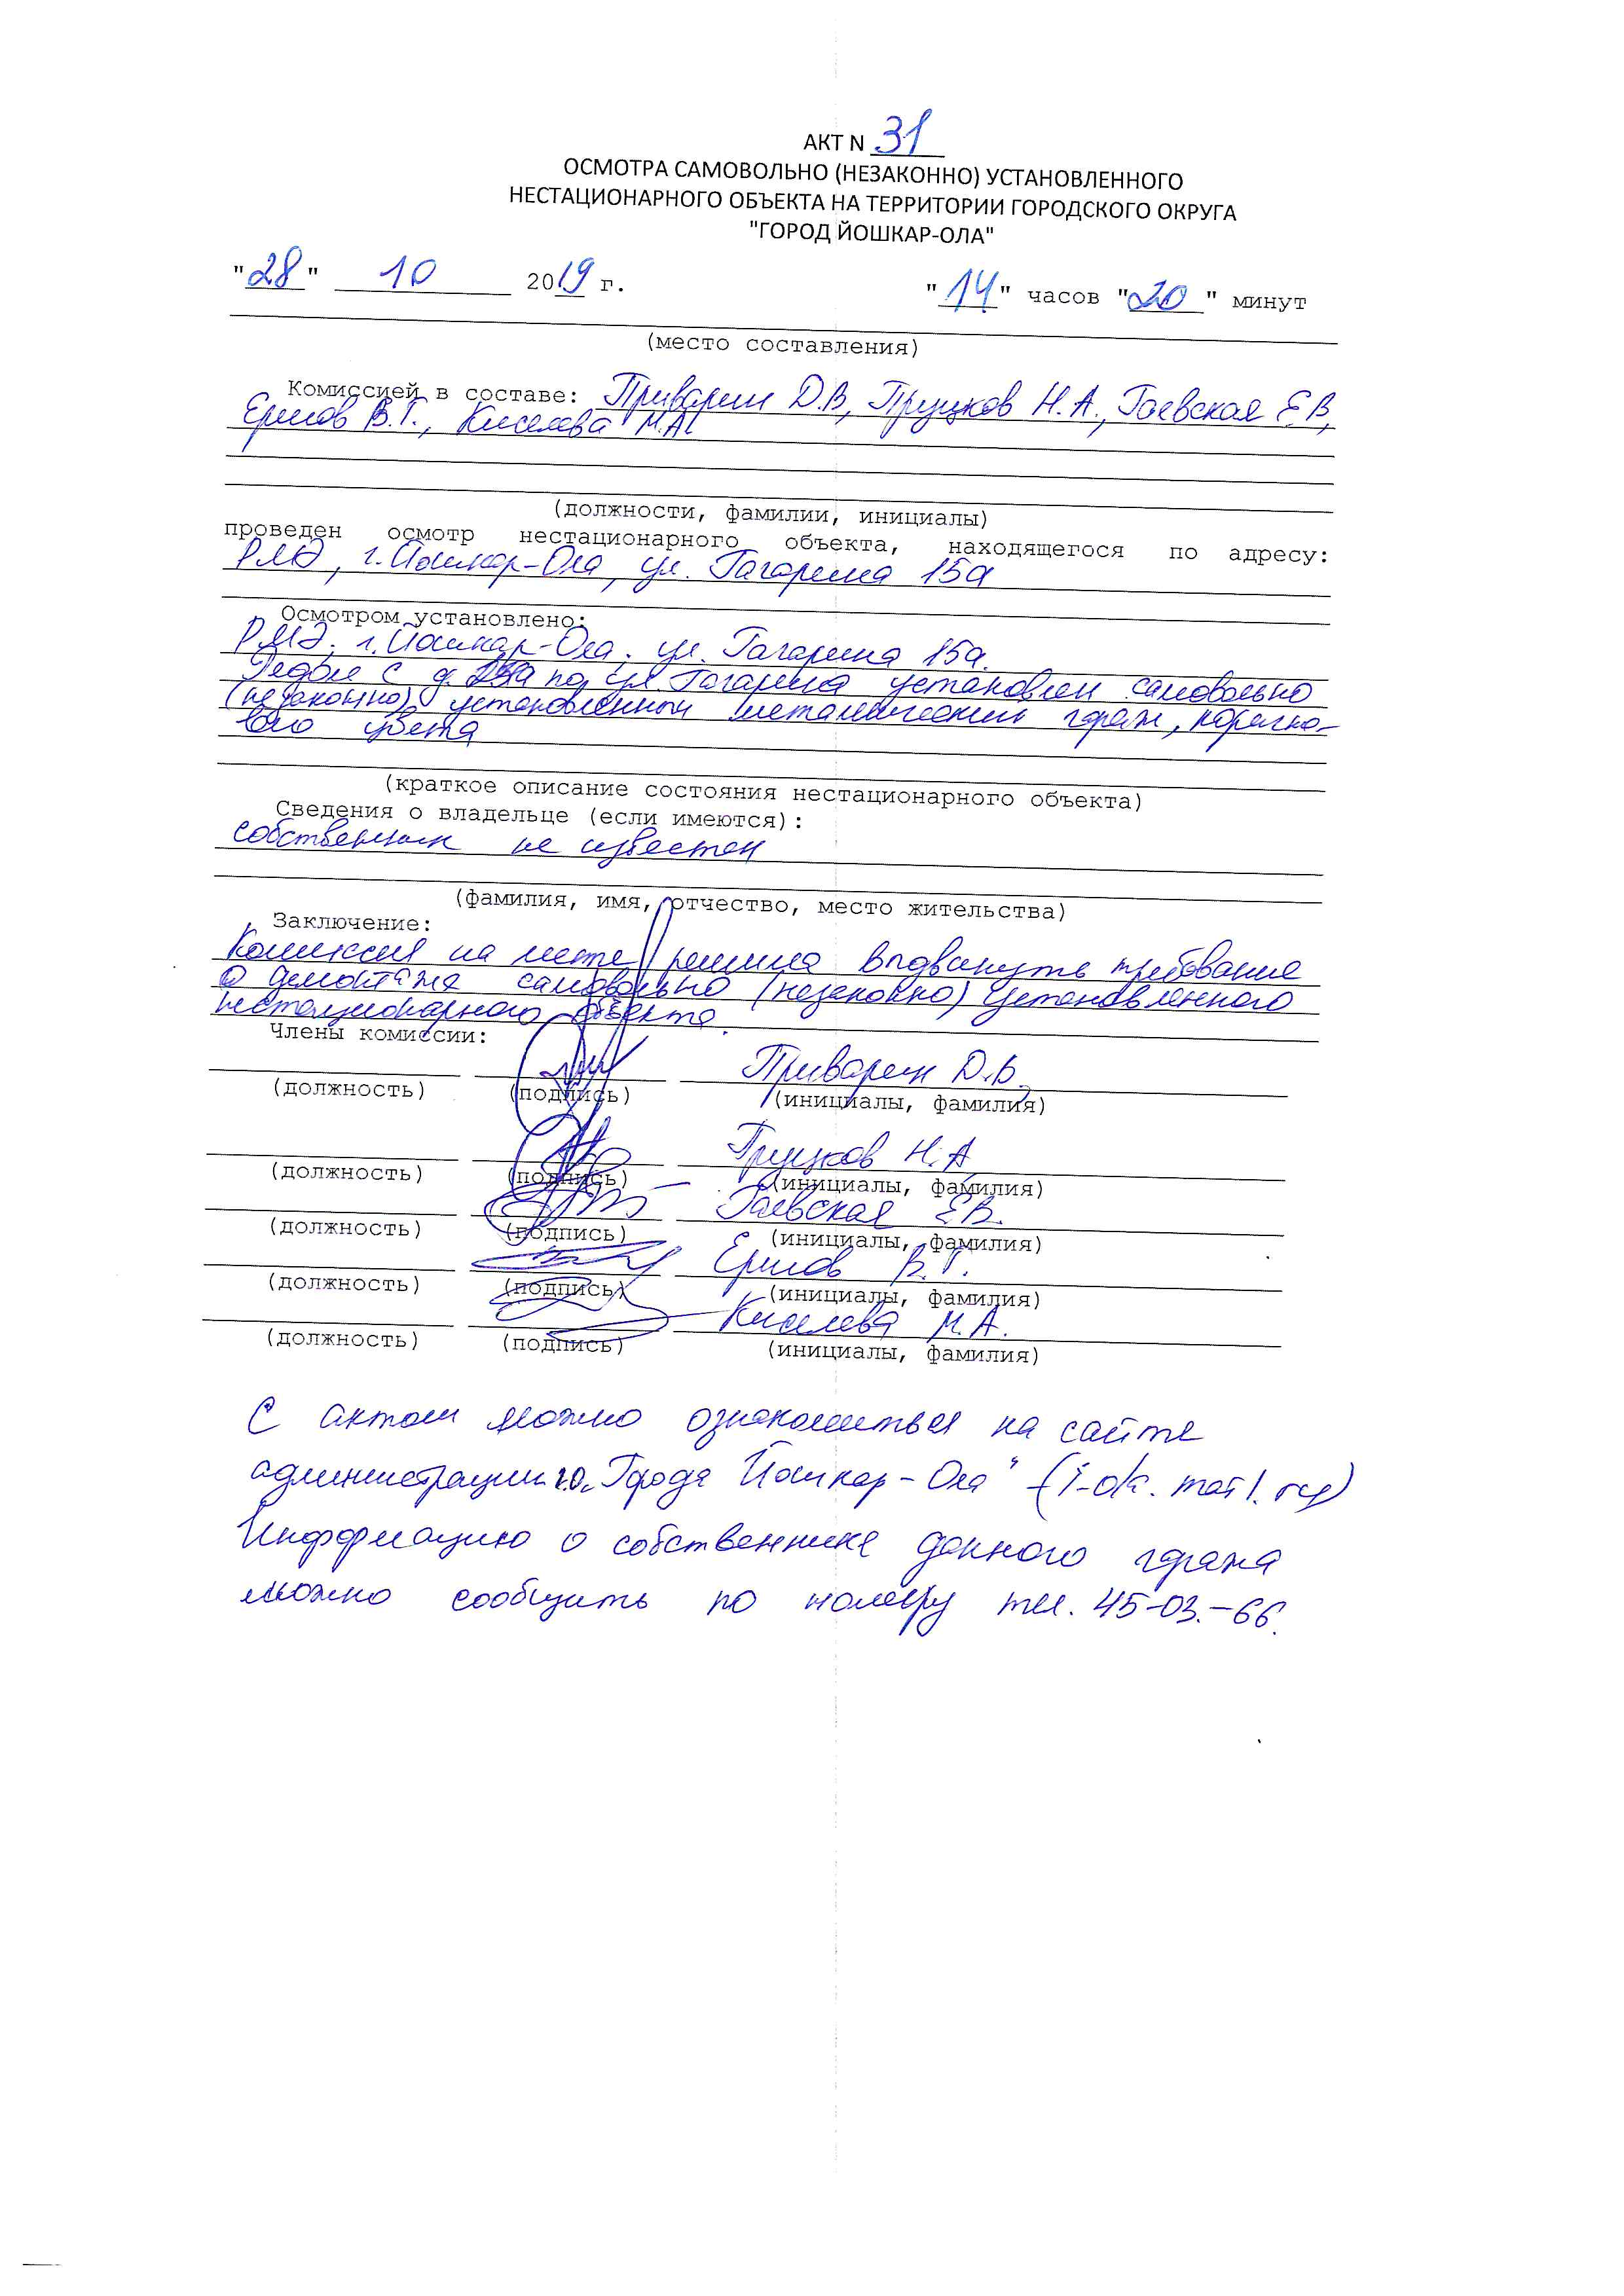 АКТ N 31
ОСМОТРА САМОВОЛЬНО (НЕЗАКОННО) УСТАНОВЛЕННОГО
НЕСТАЦИОНАРНОГО ОБЪЕКТА НА ТЕРРИТОРИИ ГОРОДСКОГО ОКРУГА
"ГОРОД ЙОШКАР-ОЛА"
"28" 10 2019 г. "14" часов "20" минут
(место составления)
Комиссией в составе: Приварин Д.В, Пруцков Н.А., Гаевская Е.В,
Ершов В.Г., Киселева М.А
(должности, фамилии, инициалы)
проведен осмотр нестационарного объекта, находящегося по адресу:
РМЭ, г. Йошкар-Ола, ул. Гагарина 15а
Осмотром установлено:
РМЭ, г. Йошкар-Ола, ул. Гагарина 15а.
Рядом с д. по ул. Гагарина установлен самовольно
(незаконно) установленный металический гараж, коричне-
вого цвета
(краткое описание состояния нестационарного объекта)
Сведения о владельце (если имеются):
собственник не известен
(фамилия, имя, отчество, место жительства)
Заключение:
Комиссия на месте решила выдвинуть требование
о демонтаже самовольно (незаконно) установленного
нестационарного объекта.
Члены комиссии:
Приварин Д.В.
(должность) (подпись) (инициалы, фамилия)
Пруцков Н.А
(должность) (подпись) (инициалы, фамилия)
Гаевская Е.В.
(должность) (подпись) (инициалы, фамилия)
Ершов В.Г.
(должность) (подпись) (инициалы, фамилия)
Киселева М.А.
(должность) (подпись) (инициалы, фамилия)
С актом можно ознакомиться на сайте
администрации г.о. "Города Йошкар-Ола"
Информацию о собственнике данного гаража
можно сообщить по номеру тел. 45-03.-66.